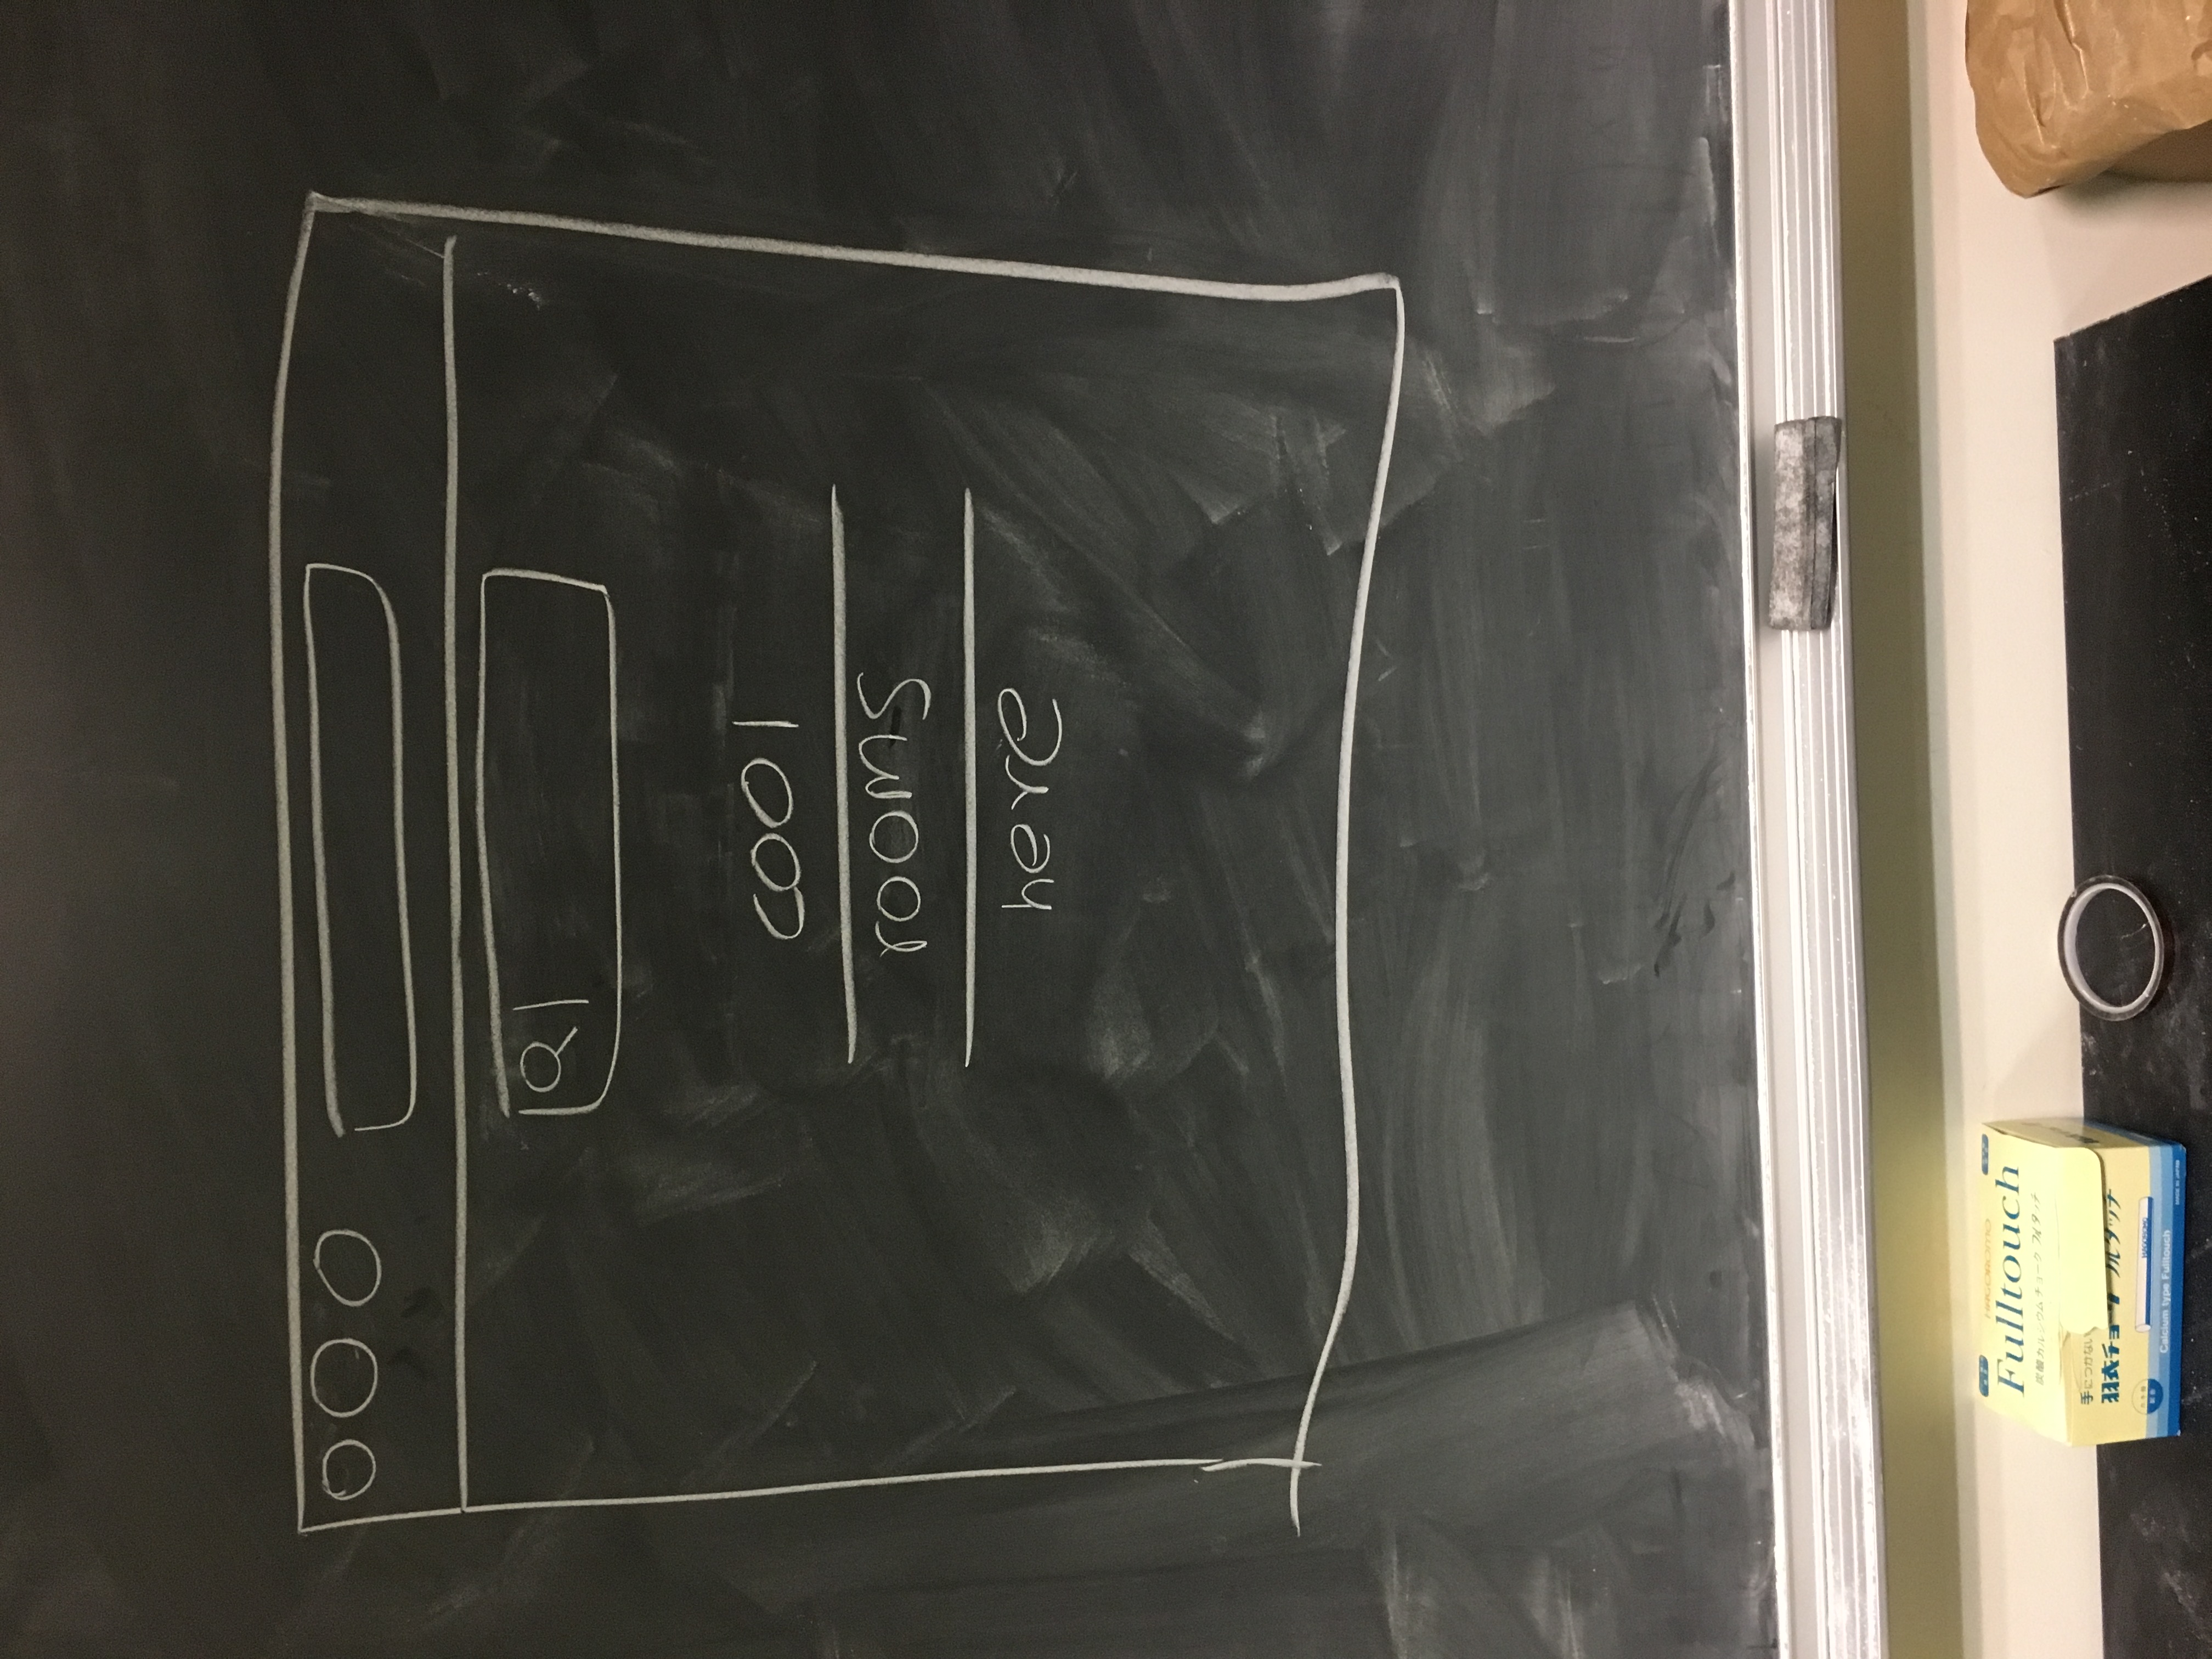 cool
rooms
here
HAGOROMO
Fulltouch
炭酸カルシウムチョーク フルタッチ
手につかない
羽衣チョーク フルタッチ
HAGOROMO
Calcium type Fulltouch
MADE IN JAPAN